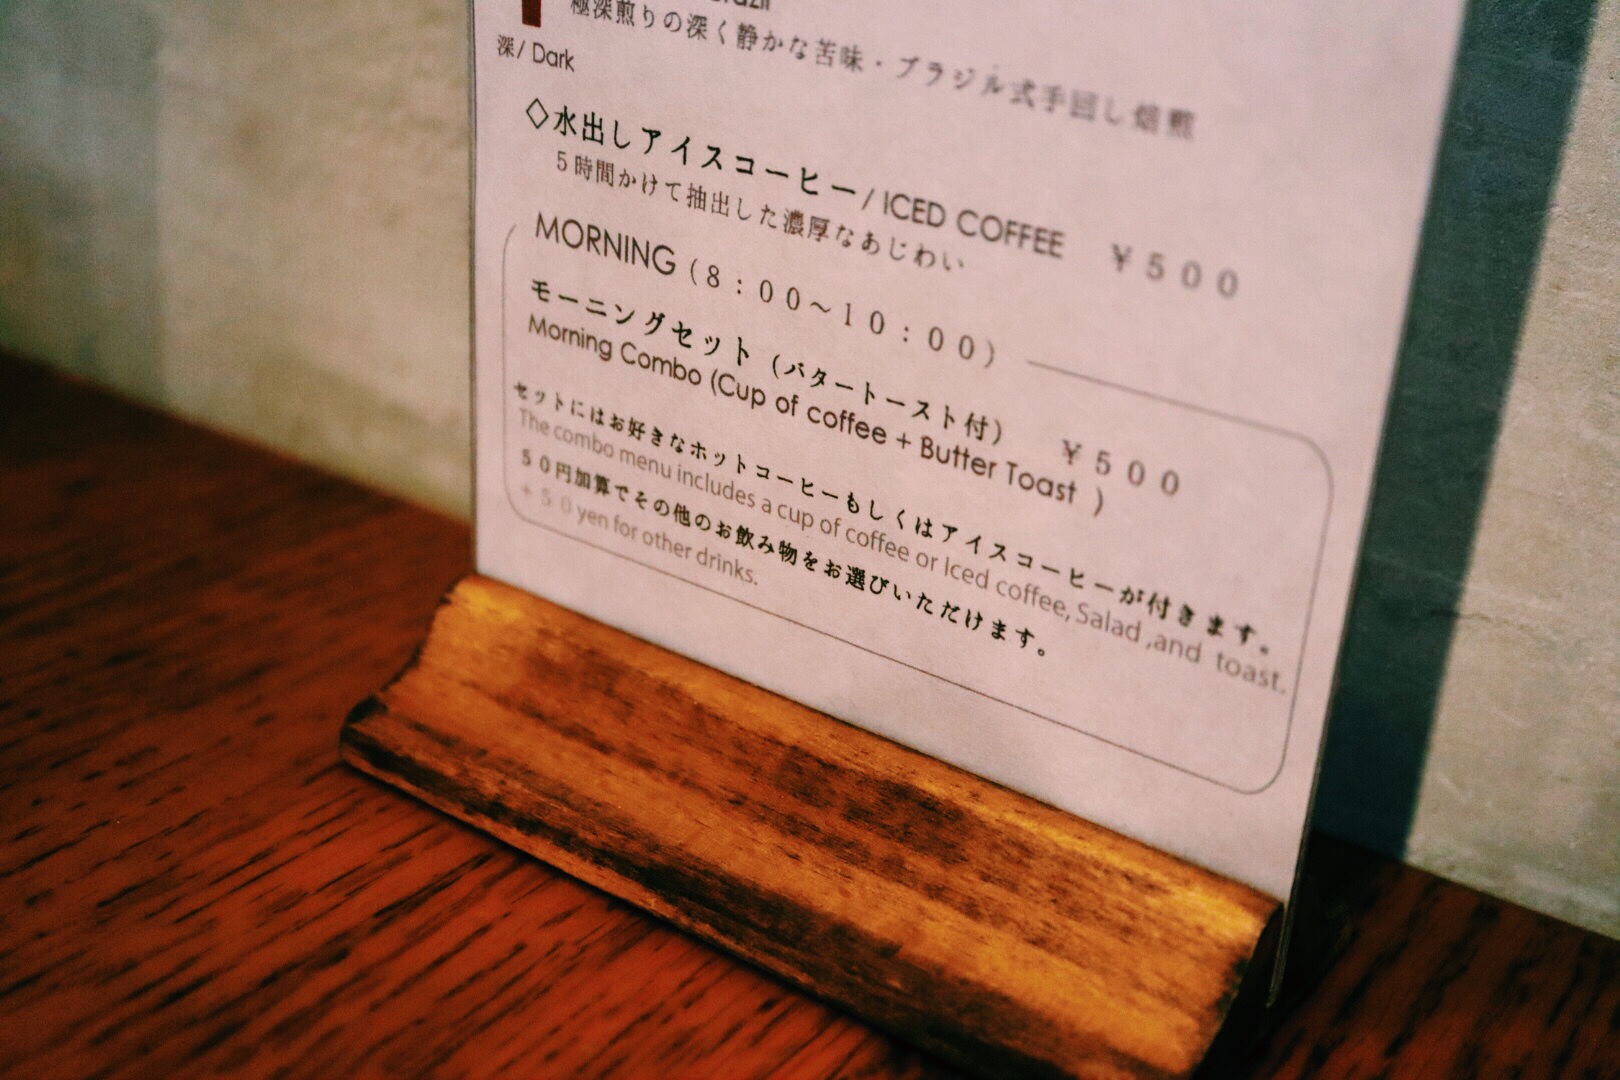 極深煎りの深く静かな苦味・ブラジル式手回し焙煎
深/ Dark
◇水出しアイスコーヒー/ ICED COFFEE ￥５００
５時間かけて抽出した濃厚なあじわい
MORNING（８：００～１０：００）
モーニングセット（バタートースト付） ￥５００
Morning Combo (Cup of coffee + Butter Toast )
セットにはお好きなホットコーヒーもしくはアイスコーヒーが付きます。
The combo menu includes a cup of coffee or Iced coffee, Salad ,and toast.
５０円加算でその他のお飲み物をお選びいただけます。
+５０yen for other drinks.